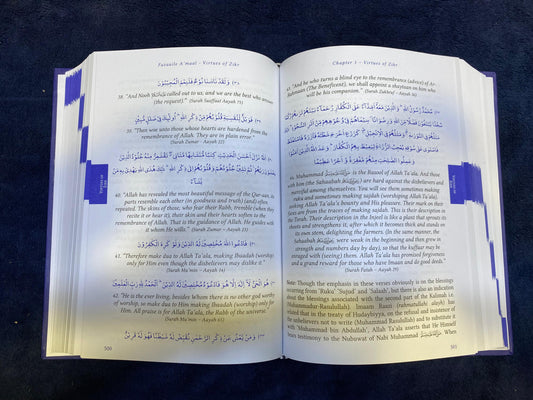 Fazaaile A'maal - Virtues of Zikr
38. "And Nooh called out to us, and we are the best who answer
the request." (Surah Saaffaat Aayah 75)
39. "Then woe unto those whose hearts are hardened from the
remembrance of Allah. They are in plain error."
(Surah Zumar - Aayah 22)
40. "Allah has revealed the most beautiful message of the Qur-aan, its
parts resemble each other (in goodness and truth) and (often)
repeated. The skins of those, who fear their Rabb, tremble (when they
recite it or hear it), their skin and their hearts soften to the
remembrance of Allah. That is the guidance of Allah. He guides with
it whom He wills." (Surah Zumar - Aayah 23)
فَادْعُوا اللهَ مُخْلِصِينَ لَهُ الدِّينَ وَلَوْ كَرِهَ الْكٰفِرُونَ
41. "Therefore make dua to Allah Ta'ala, making Ibaadah (worship)
only for Him even though the disbelievers may dislike it."
(Surah Mu'min - Aayah 14)
هُوَ الْحَيُّ لَا إِلٰهَ إِلَّا هُوَ فَادْعُوهُ مُخْلِصِينَ لَهُ الدِّينَ الْحَمْدُ لِلّٰهِ رَبِّ الْعٰلَمِينَ
42. "He is the ever living. Besides Whom there is no other god worthy
of worship, so make dua to Him making Ibaadah (worship) only for
Him. All praise is for Allah Ta'ala, the Rabb of the universe."
(Surah Mu'min - Aayah 65)
وَمَنْ يَعْشُ عَنْ ذِكْرِ الرَّحْمٰنِ نُقَيِّضْ لَهُ شَيْطٰنًا فَهُوَ لَهُ قَرِينٌ
500
Chapter 1 - Virtues of Zikr
43. "And he who turns a blind eye to the remembrance (advice) of Ar-
Rahmaan (The Beneficent), we shall appoint a shaytaan on him who
will be his companion." (Surah Zukhruf - Aayah 36)
44. Muhammad is the Rasool of Allah Ta'ala. And those
with him (the Sahaabah) are hard against the disbelievers and
merciful among themselves. You will see them sometimes making
ruku and sometimes making sajdah (worshiping Allah Ta'ala). They
seek Allah Ta'ala's bounty and His pleasure. Their mark on their
faces are from the traces of making sajdah. This is their description in
the Torah. Their description in the Injeel is like a plant that sprouts its
shoots and strengthens it, after which it becomes thick and stands on
its own stem, delighting the farmers. (in the same way, the
Sahaabah were weak in the beginning and then grew in
strength and numbers day by day), so that the kuffaar may be
enraged with (seeing) them. Allah Ta'ala has promised forgiveness
and a grand reward for those who have Imaan and do good deeds."
(Surah Fatah - Aayah 29)
Note: Though the emphasis in these verses obviously is on the blessings
occurring from 'Ruku' 'Sujud' and 'Salaah', but there is also an indication
about the blessings associated with the second part of the Kalimah i.e.
(Muhammadur-Rasulullah). Imaam Raazi (rahmatullahi alayh) has
stated that in the treaty of Hudaybiyya, on the refusal and insistence of
the unbelievers not to write (Muhammad Rasulullah) and to substitute it
with 'Muhammad bin Abdullah', Allah Ta'ala asserts that He Himself
bears testimony to the Nubuwat of Nabi Muhammad. When
501